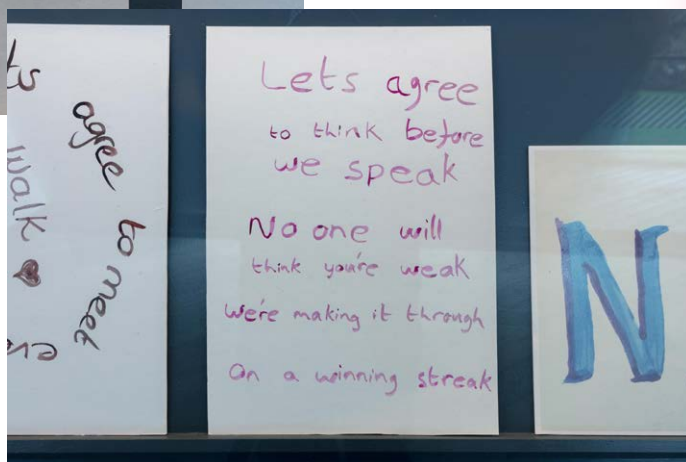 agree to meet
Walk
Lets agree
to think before
we speak
No one will
think you're weak
We're making it through
On a winning streak
N